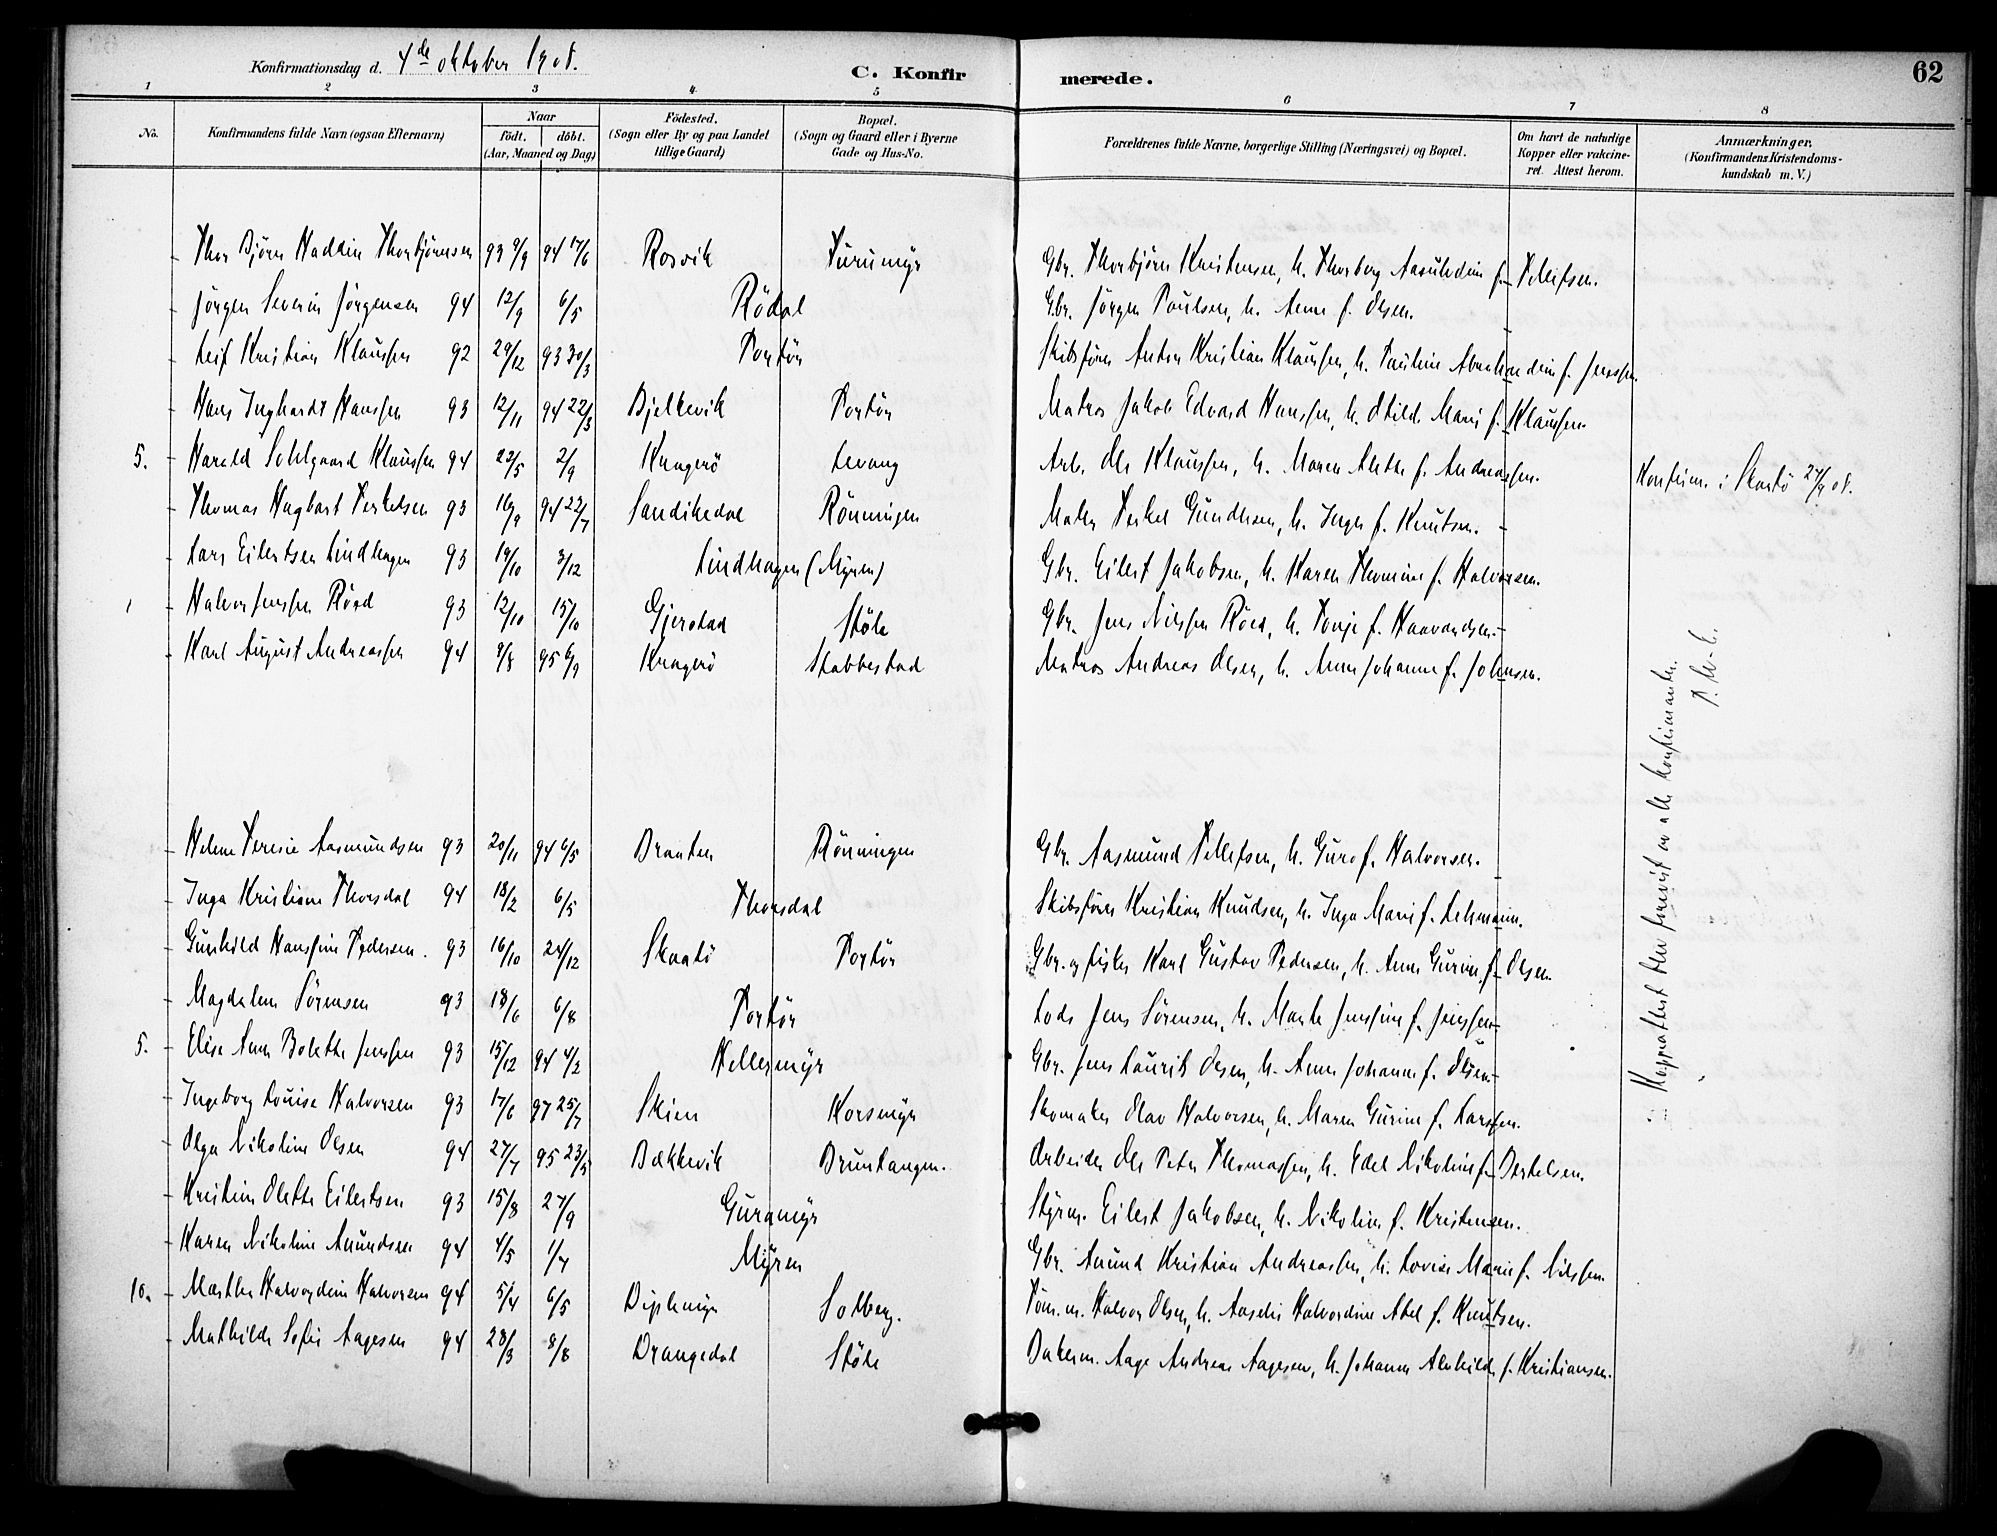 62
Konfirmationsdag d. 4de oktober 1908.
C. Konfirmerede.
1 2 3 4 5 6 7 8
No.
Konfirmandens fulde Navn (ogsaa Efternavn)
Naar
født. døbt.
(Aar, Maaned og Dag)
Fødested.
(Sogn eller By og paa Landet
tillige Gaard)
Bopæl.
(Sogn og Gaard eller i Byerne
Gade og Hus-No.
Forældrenes fulde Navne, borgerlige Stilling (Næringsvei) og Bopæl.
Om havt de naturlige
Kopper eller vakcine-
ret. Attest herom.
Anmærkninger.
(Konfirmandens Kristendoms-
kundskab m. V.)
Thor Bjørn Haddin Thorbjørnsen 93 9/9 94 17/6 Rosvik Furumyr Gbr. Thorbjørn Kristensen, h. Thorborg f. Tellefsen.
Jørgen Severin Jørgensen 94 12/9 6/5 Rødal Gbr. Jørgen Paulsen, h. Anne f. Olsen.
Leif Kristian Klaussen 92 29/12 93 30/3 Portør Skibsfører Anton Kristian Klaussen, h. Pauline Abrahamdine f. Jenssen.
Hans Inghardt Hanssen 93 12/11 94 22/3 Bjelkevik Portør Matros Jakob Edvard Hanssen, h. Otilde Marie f. Klaussen.
5. Harald Solhgaard Klaussen 94 22/5 2/9 Kragerø Levang Arb. Ole Klaussen, h. Maren Alethe f. Andreassen. Konfirm. i Skaatø 27/9 08.
Thomas Hagbart Terkelsen 93 16/9 94 22/7 Sandikedal Rønningen Terkel Gundersen, h. Inger f. Knutsen.
Lars Eilertsen Lindhagen 93 19/10 3/12 Lindhagen (Myren) Gbr. Eilert Jakobsen, h. Karen Thomine f. Halvorsen.
Halvor Jenssen Røed 93 12/10 15/10 Gjerstad Støle Gbr. Jens Nilssen Røed, h. Tonje f. Haavardsen.
Karl August Andreassen 94 9/8 95 6/9 Kragerø Stabbestad Matros Andreas Olsen, h. Anne Johanne f. Johnsen.
Helene Teresie Aasmundsen 93 20/11 94 6/5 Braaten Rønningen Gbr. Aasmund Tellefsen, h. Guro f. Halvorsen.
Inga Kristiane Thorsdal 94 18/2 6/5 Thorsdal Skibsfører Kristian Knudsen, h. Inga Marie f. Lehmann.
Gunhild Hanssine Pedersen. 93 16/10 24/12 Skaatø Portør Gbr. og fisker Karl Gustav Pedersen, h. Anne Gurine f. Olsen.
Magdalene Sørensen 93 18/6 6/8 Portør Lods Jens Sørensen, h. Marte Jenssine f. Jenssen
5. Elise Anne Bolette Jenssen 93 15/12 94 4/2 Hellesmyr Gbr. Jens Laurits Olsen, h. Anne Johanne f. Olsen
Ingeborg Louise Halvorsen 93 17/6 97 25/7 Skien Korsmyr Skomaker Olav Halvorsen, h. Maren Gurine f. Larssen.
Olga Nikoline Olsen 94 27/7 95 23/5 Bækkevik Bruntangen. Arbeider Ole Peter Thomassen, h. Edel Nikoline f. Bertelsen.
Kristine Olette Eilertsen 93 15/8 27/9 Guramyr Styrm. Eilert Jakobsen, h. Nikoline f. Kristensen.
Karen Nikoline Anundsen 94 4/5 1/7 Myren Gbr. Anund Kristian Andreassen, h. Lovise Marie f. Nilssen.
10. Marthe Halvordine Halvorsen 94 5/4 6/5 Solberg. Tøm. m. Halvor Olsen, h. Aaselie Halvordine Abel f. Knutsen.
Mathilde Sofie Aagesen 94 28/3 8/8 Drangedal Støle Bakerm. Aage Andreas Aagesen, h. Johanne Alvhilde f. Kristiansen.
Koppeattest blev forevist av alle konfirmanter.